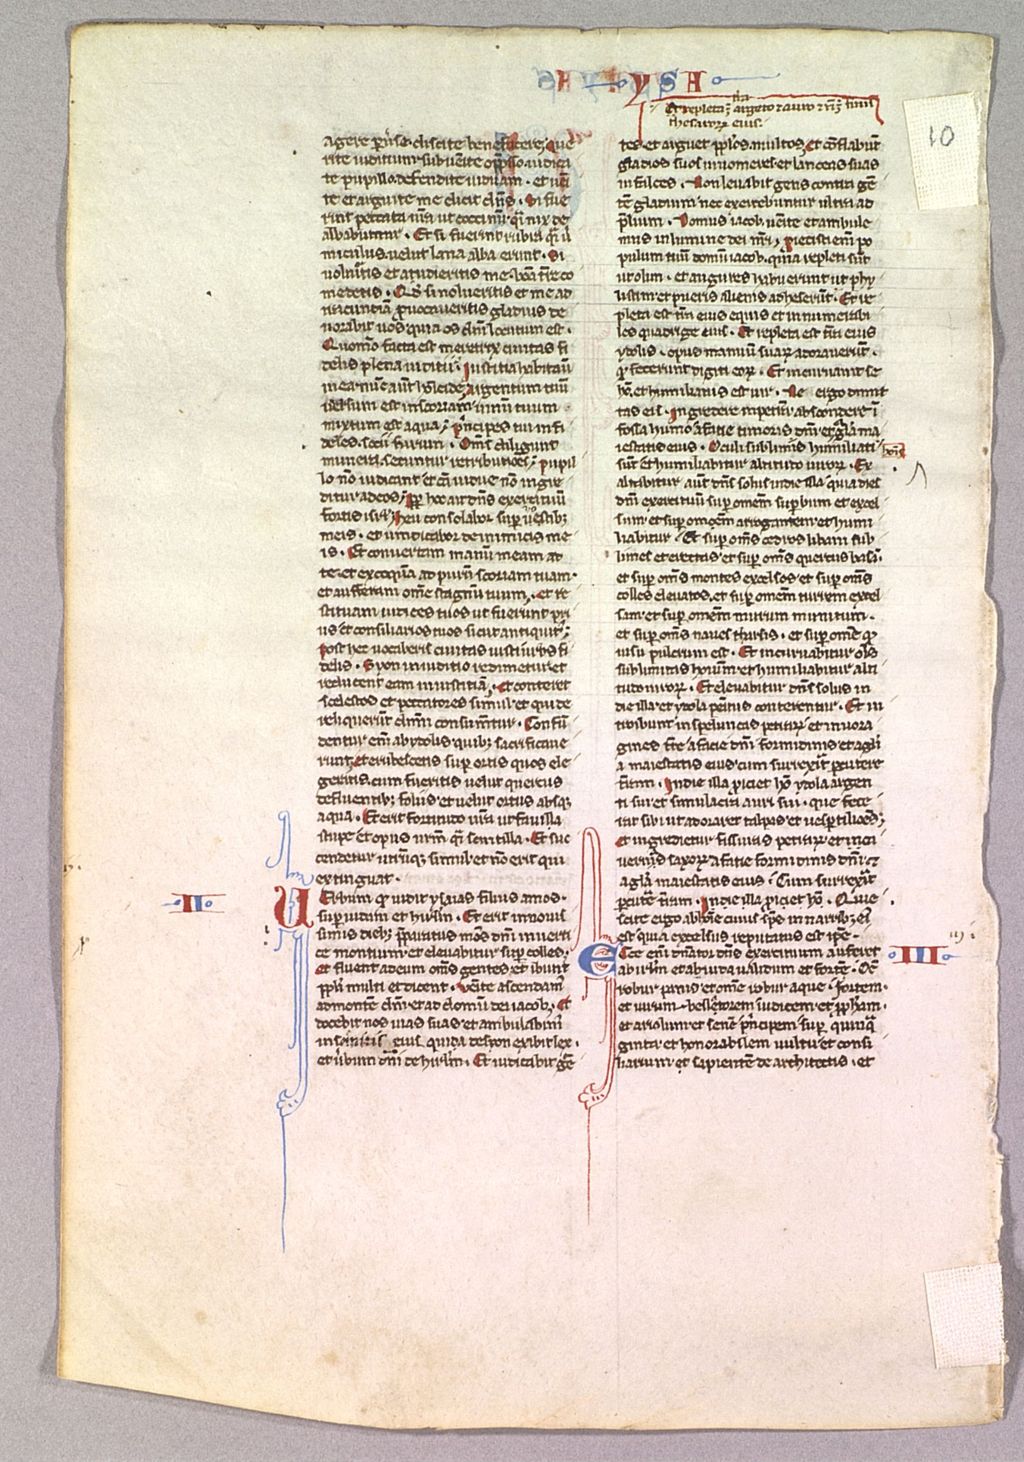 YSA
Et repleta ē argēto ⁊ auro ⁊ nō ē finis
thesauroꝝ eius.
10
agere ꝑuerse discite benefacere, que
rite iudicium subuenite opp̄sso iudica
te pupillo defendite uiduam · et ueni
te et arguite me dicit dn̄s · Si fue
rint peccata ur̄a ut coccinum q̄si nix de
albabuntur · Et si fuerint rubra q̄si u̾
miculus uelut lana alba erunt · Si
uolueritis et audieritis me bona terre co
medetis · Qd̄ si nolueritis et me ad
iracundiā prouocaueritis gladius de
uorabit uos quia os dn̄i locutum est ·
Quomō facta est meretrix ciuitas fi
delis plena iudicii · Iusticia habitauit
in ea nūc aut̄ homicide, argentum tuū
uersum est in scoriam uinum tuum
mixtum est aqua, p̄ncipes tui infi
deles socii furum · Om̄s diligunt
munera secuntur retributiōes, pupil
lo nō iudicant et cā uidue nō ingre
ditur ad eos, ꝓpt̄ hoc ait dn̄s exercituū
fortis isrl̄, Heu consolabor sup̱ hostibꝫ
meis · et uindicabor de inimicis me
is · Et conuertam manū meam ad
te et excoquā ad purū scoriam tuam ·
et aufferam om̄e stagnū tuum, et re
stituam iudices tuos ut fuerunt pri
us et consiliarios tuos sicut antiquitꝰ,
post hec uocaberis ciuitas iusti urbs fi
delis · Syon in iuditio redimetur et
reducent eam in iustitiā, et conteret
scelestos et peccatores simul et qui de
reliquerūt dn̄m consumētur · Confū
dentur em̄ ab ydolis quibꝫ sacrificaue
runt, et erubescetis sup̱ ortis quos ele
geratis, cum fueritis uelut quercus
defluentibꝫ foliis et uelut ortus absqꝫ
aqua · Et erit fortitudo ur̄a ut fauilla
stupe et opus ur̄m q̄si scintilla · Et suc
cendetur utrūqꝫ simul et nō erit qui
extinguat ·
II
Verbum qd̄ uidit ysaias filius amos ·
sup̱ iudam et ihrl̄m · Et erit in noui
simis diebꝫ p̄paratus mōs dn̄i in uerti
ce montium et eleuabitur sup̱ colles,
et fluent ad eum om̄s gentes, et ibunt
ppl̄i multi et dicent · Venite ascendamꝰ
ad montē dn̄i et ad domū dei iacob, et
docebit nos uias suas et ambulabimꝰ
in semitis eius, quia de syon exibit lex ·
et ūbum dn̄i de ihrl̄m · Et iudicabit gē
tes et arguet ppl̄os multos, et cōflabunt
gladios suos in uomeres et lanceas suas
in falces · Non leuabit gens contra gē
tē gladium nec exercebuntur ultra ad
p̄lium · Domus iacob uenite et ambule
mus in lumine dei nr̄i, Proiecisti em̄ po
pulum tuū domū iacob, quia repleti sūt
ut olim · et augures habuerunt ut phy
listiim et pueris alienis adheserūt · Et re
pleta est terra eius equis et innumerabi
les quadrige eius · Et repleta est terra eius
ydolis · opus manuū suaꝝ adorauerūt ·
qd̄ fecerunt digiti eoꝝ · Et incuruauit se
hō, et humiliatus est uir · Ne ergo dimit
tas eis · Ingredere in petram abscondere ī
fossa humo a facie timoris dn̄i et gl̄a ma
iestatis eius · Oculi sublimis humiliati
hoīs
sūt et humiliabitur altitudo uiroꝝ · Ex
altabitur aut̄ dn̄s solus in die illa quia dies
dn̄i exercituū sup̱ omēm supbum et excel
sum et sup̱ omēm arrogantem et humi
liabitur · Et sup̱ om̄s cedros libani sub
limes et erectas et sup̱ om̄s quercus basā ·
et sup̱ om̄s montes excelsos et sup̱ om̄s
colles eleuatos, et sup̱ omēm turrem excel
sam et sup̱ omēm murum munitum ·
et sup̱ om̄s naues tharsis · et sup̱ om̄e qd̄
uisu pulcrum est · Et incuruabitur om̄is
sublimitas hoīum et humiliabitur alti
tudo uiroꝝ · Et eleuabitur dn̄s solus in
die illa et ydola penitus conterentur · Et in
troibunt in speluncas petraꝝ et in uora
gines terre a facie dn̄i formidinis et a gl̄i
a maiestatis eius, cum surrexit ꝑcutere
terram · In die illa ꝓiciet hō ydola argen
ti sui et simulacra auri sui · que fece
rat sibi ut adoraret talpas et uespertiliones,
et ingredietur fissuras petraꝝ et in ca
uernas saxoꝝ a facie formidinis dn̄i et
a gl̄a maiestatis eius · Cum surrexit
ꝑcutere terram · In die illa ꝓiciet hō · Quie
scite ergo ab hoīe cuius sp̄s in naribꝫ eiꝰ
est quia excelsus reputatus est ipse ·
III
iij ·
Ecce em̄ dn̄ator dn̄s exercituum auferet
ab ihrl̄m et ab iuda ualidum et fortē · Oē
robur panis et om̄e robur aque · fortem ·
et uirum bellatorem iudicem et ꝓpham ·
et ariolum et senē, p̄ncipem sup̱ quinqua
ginta et honorabilem uultu et consi
liarium · et sapientē de architectis · et